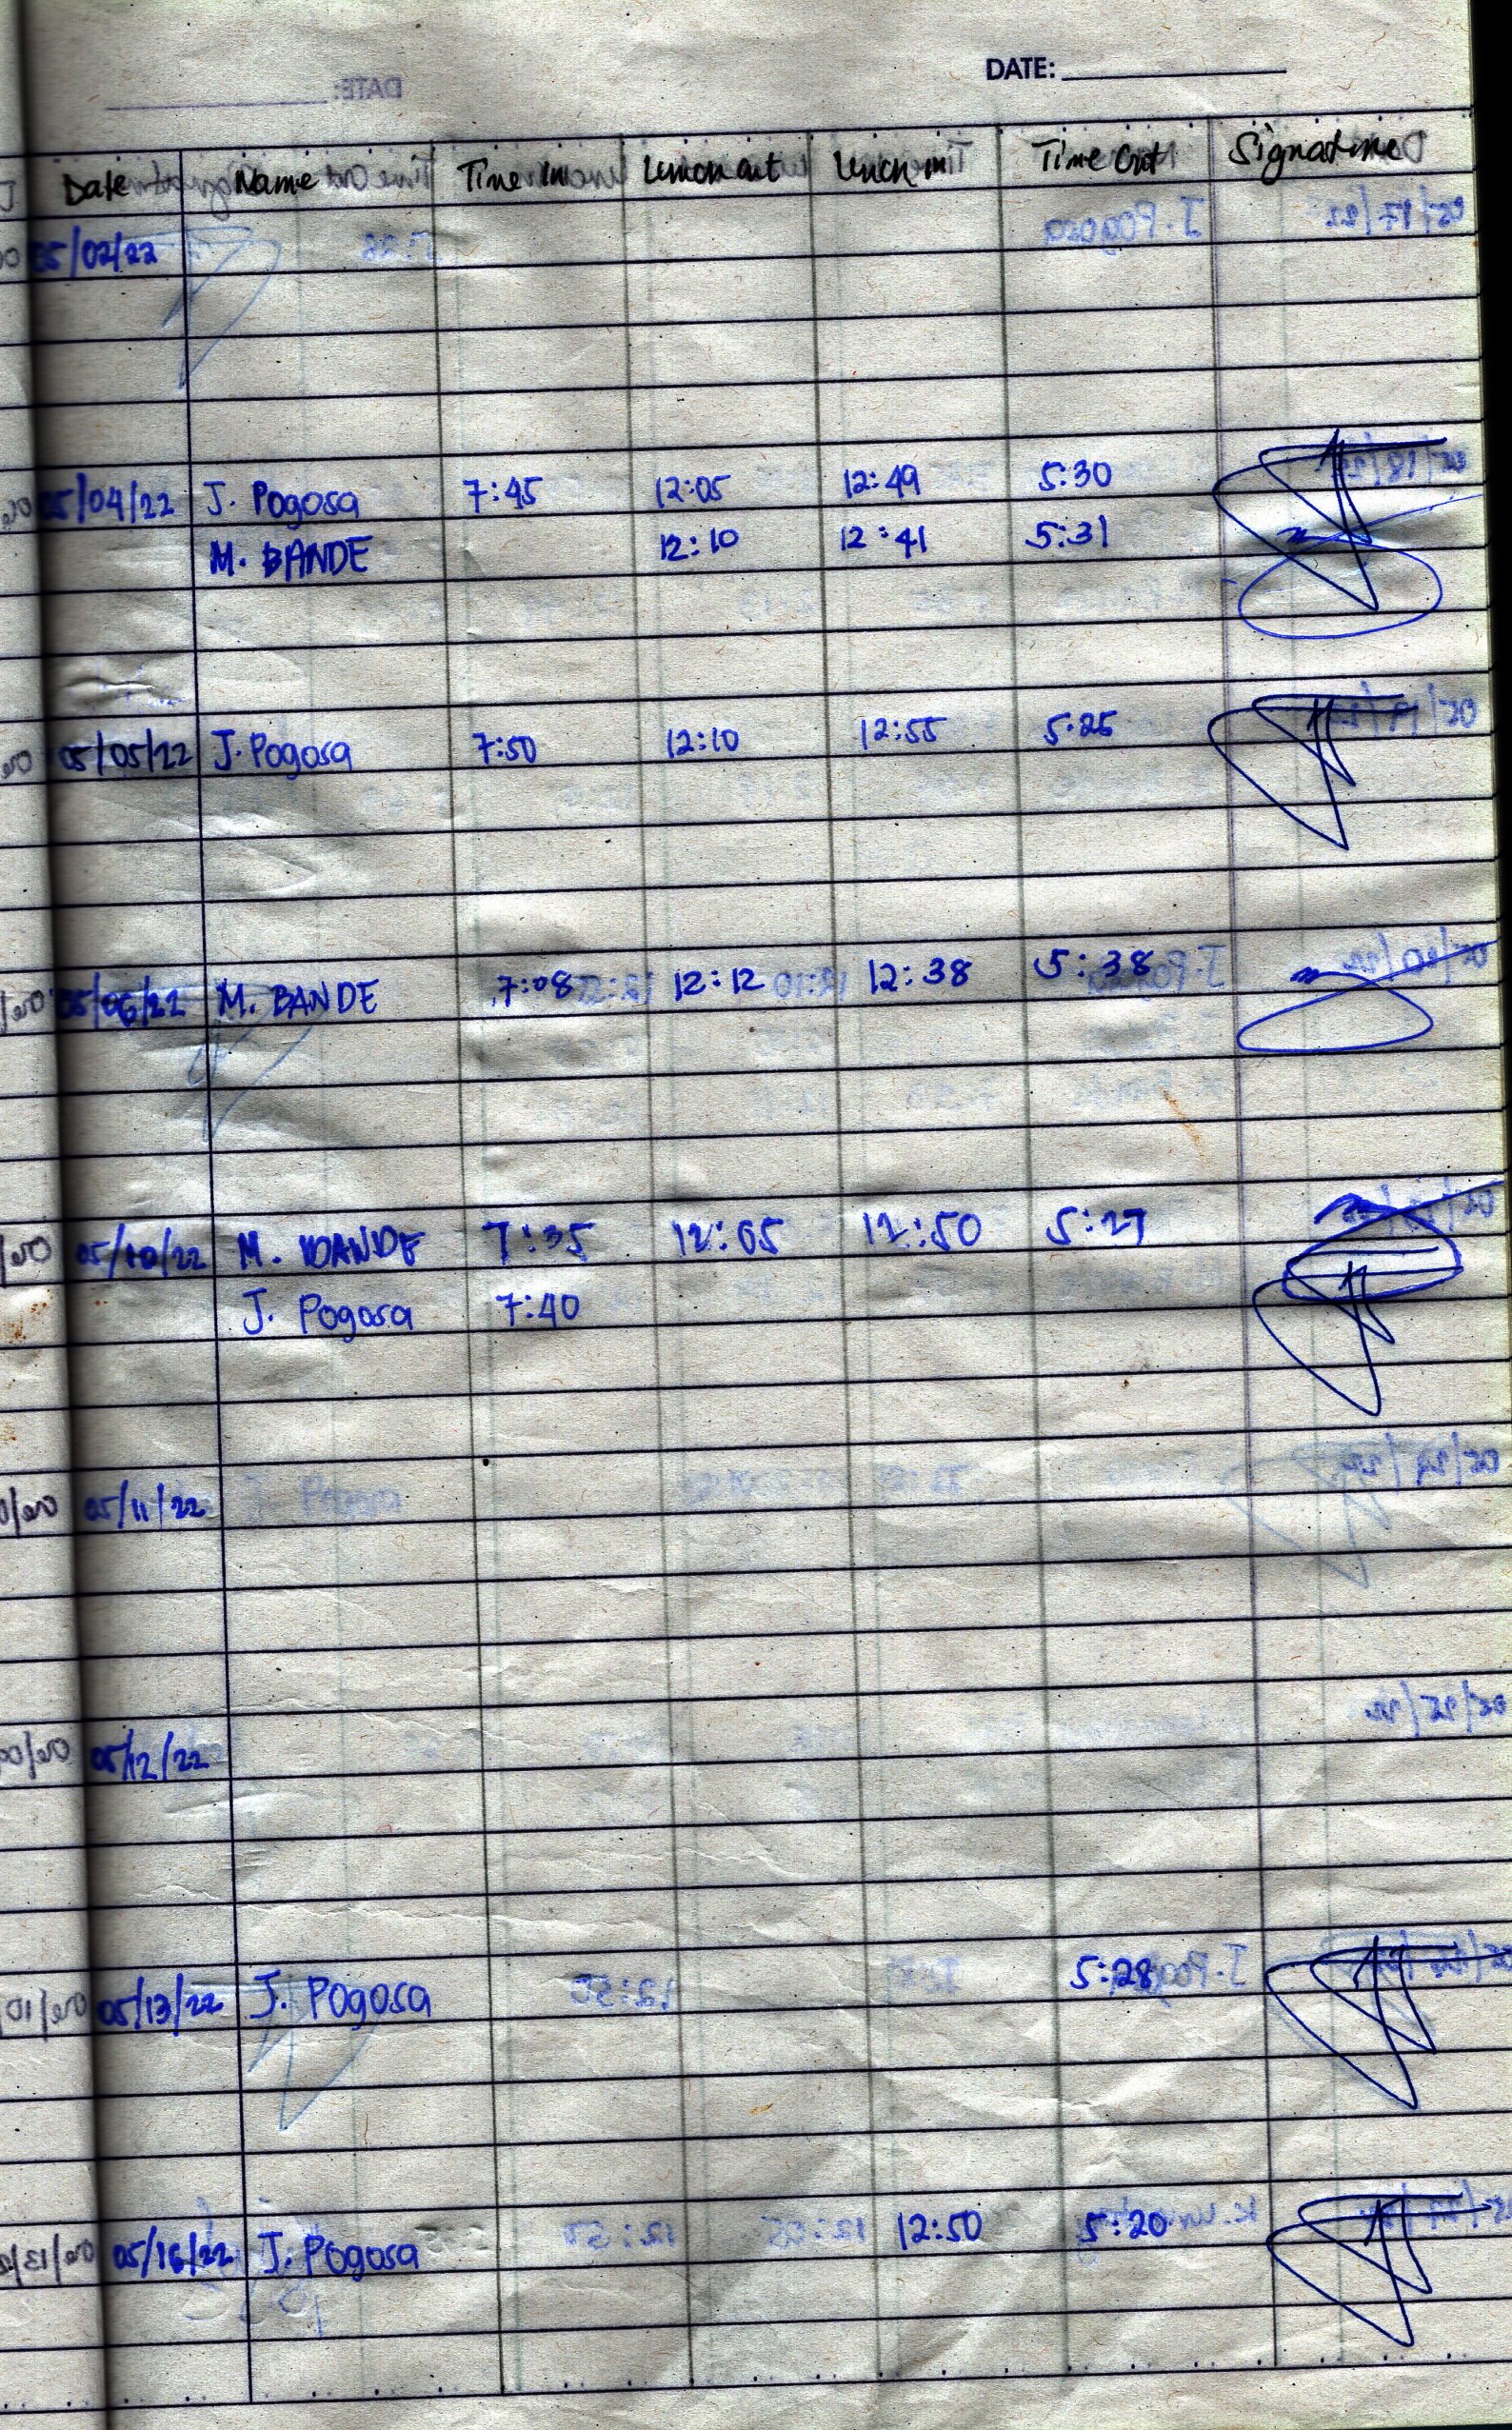 DATE:
Date Name Time In Lunch out Lunch in Time Out Signature
05/02/22
05/04/22 J. Pogosa 7:45 12:05 12:49 5:30
M. BANDE 12:10 12:41 5:31
05/05/22 J. Pogosa 7:50 12:10 12:55 5:25
05/06/22 M. BANDE 7:08 12:12 12:38 5:38
05/10/22 M. BANDE 7:35 12:05 12:50 5:27
J. Pogosa 7:40
05/11/22
05/12/22
05/13/22 J. Pogosa 5:28
05/16/22 J. Pogosa 12:50 5:20